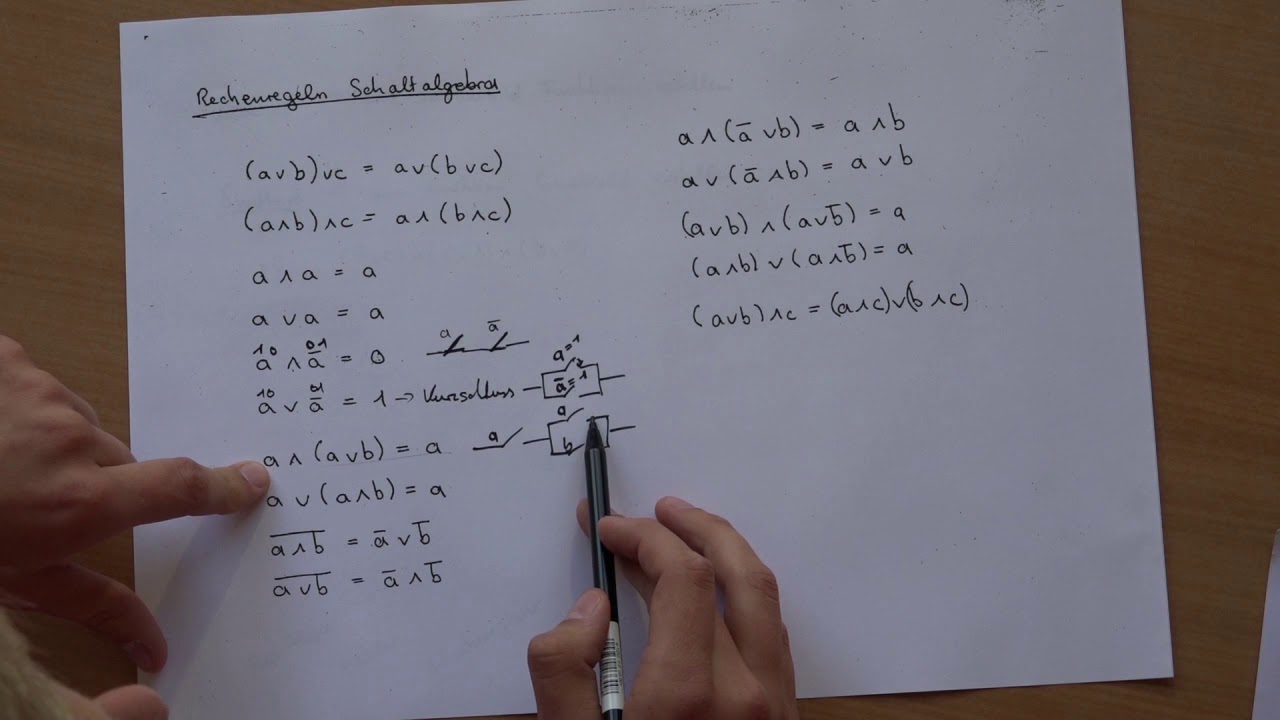 Rechenregeln Schaltalgebra
(a∨b)∨c = a∨(b∨c)
(a∧b)∧c = a∧(b∧c)
a ∧ a = a
a ∨ a = a
10 01
a ∧ a̅ = 0
a a̅
10 01
a ∨ a̅ = 1 → Kurzschluss
a=1
a̅=1
a ∧ (a∨b) = a
a
a
b
a ∨ (a∧b) = a
a̅∧̅b̅ = a̅ ∨ b̅
a̅∨̅b̅ = a̅ ∧ b̅
a∧(a̅ ∨b) = a ∧b
a∨(a̅ ∧b) = a ∨ b
(a∨b) ∧(a∨b̅) = a
(a∧b) ∨(a∧b̅) = a
(a∨b)∧c = (a∧c)∨(b∧c)